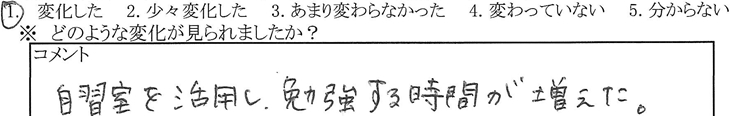 1. 変化した 2. 少々変化した 3. あまり変わらなかった 4. 変わっていない 5. 分からない
※ どのような変化が見られましたか？
コメント
自習室を活用し、勉強する時間が増えた。